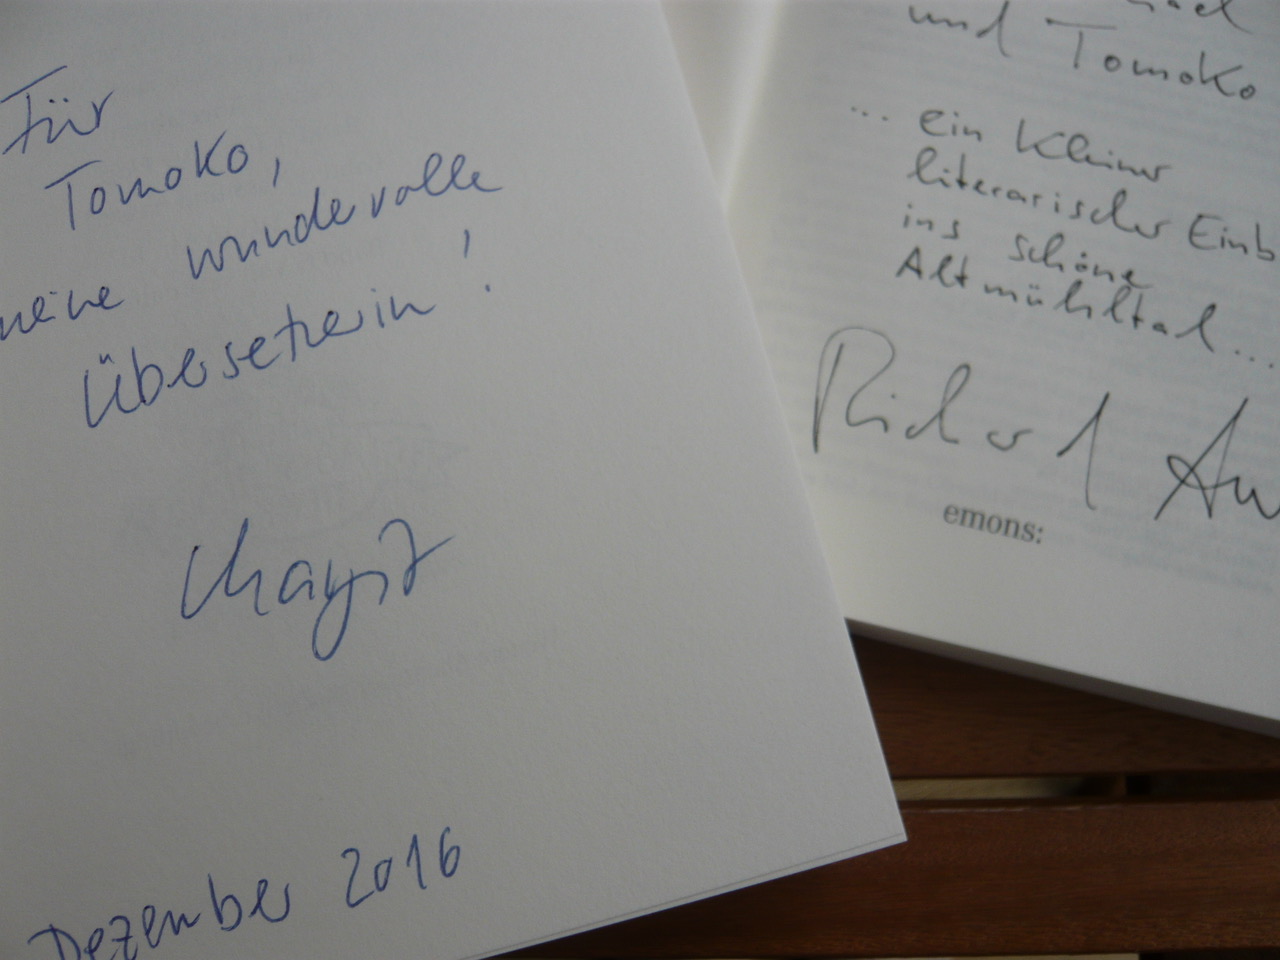 Für
Tomoko,
meine wundervolle
Übersetzerin!
Dezember 2016
und Tomoko
... ein kleiner
literarischer Einb
ins schöne
Altmühltal...
Richard Au
emons: